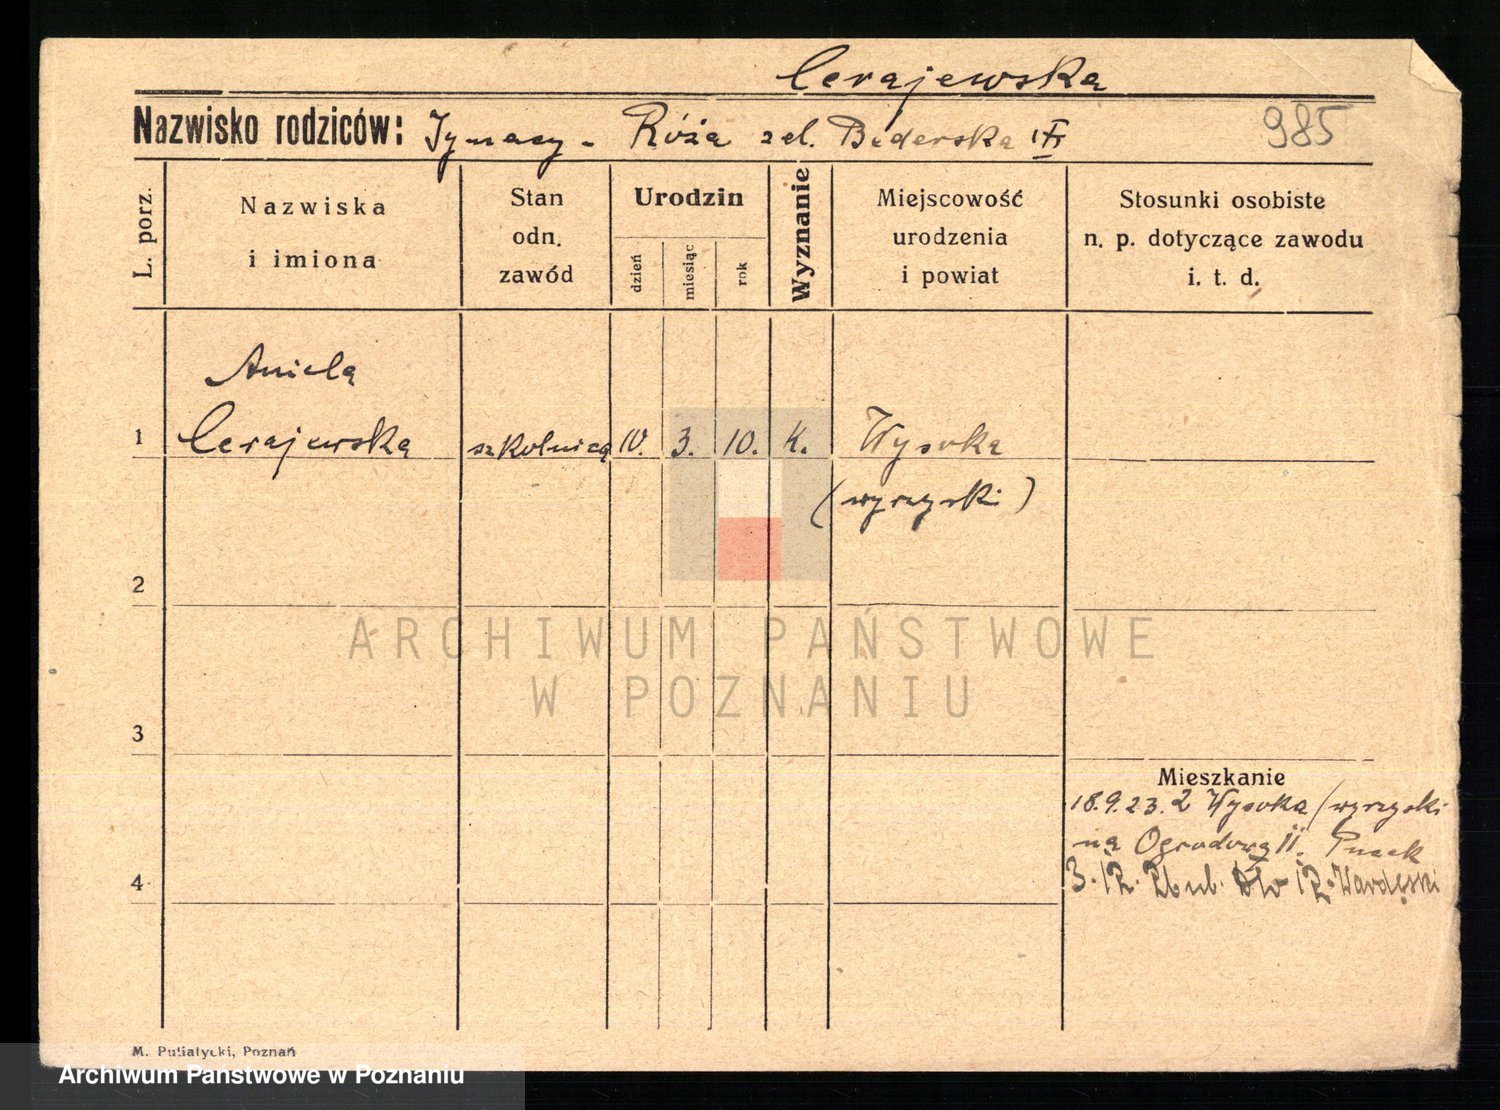 Cerajewska
Nazwisko rodziców: Ignacy - Róża zd. Bederska
985
L. porz.
Nazwiska
i imiona
Stan
odn.
zawód
Urodzin
dzień
miesiąc
rok
Wyznanie
Miejscowość
urodzenia
i powiat
Stosunki osobiste
n. p. dotyczące zawodu
i. t. d.
Aniela
1 Cerajewska szkolnica 10. 3. 10. K. Wysoka
(wyrzyski)
2
3
4
Mieszkanie
18.9.23. z Wysoka (wyrzyski
na Ogrodową 11.
ARCHIWUM PAŃSTWOWE
W POZNANIU
M. Putiatycki, Poznań
Archiwum Państwowe w Poznaniu